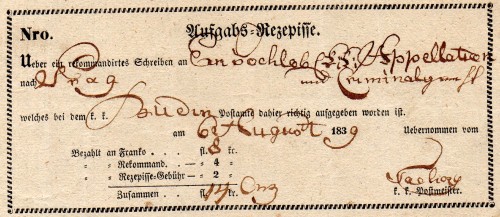 Nro. Aufgabs-Rezepisse.
Ueber ein rekommandirtes Schreiben an Ein hochlob k.k. Appellation
nach Prag und Criminalgericht
welches bei dem k. k. Budin Postamte dahier richtig aufgegeben worden ist.
am 6 August 1839 Uebernommen vom
Bezahlt an Franko fl. 8 kr.
„ „ Rekommand. — „ 4 „
„ „ Rezepisse-Gebühr — „ 2 „
Zusammen fl. 14 kr.
k. k. Postmeister.